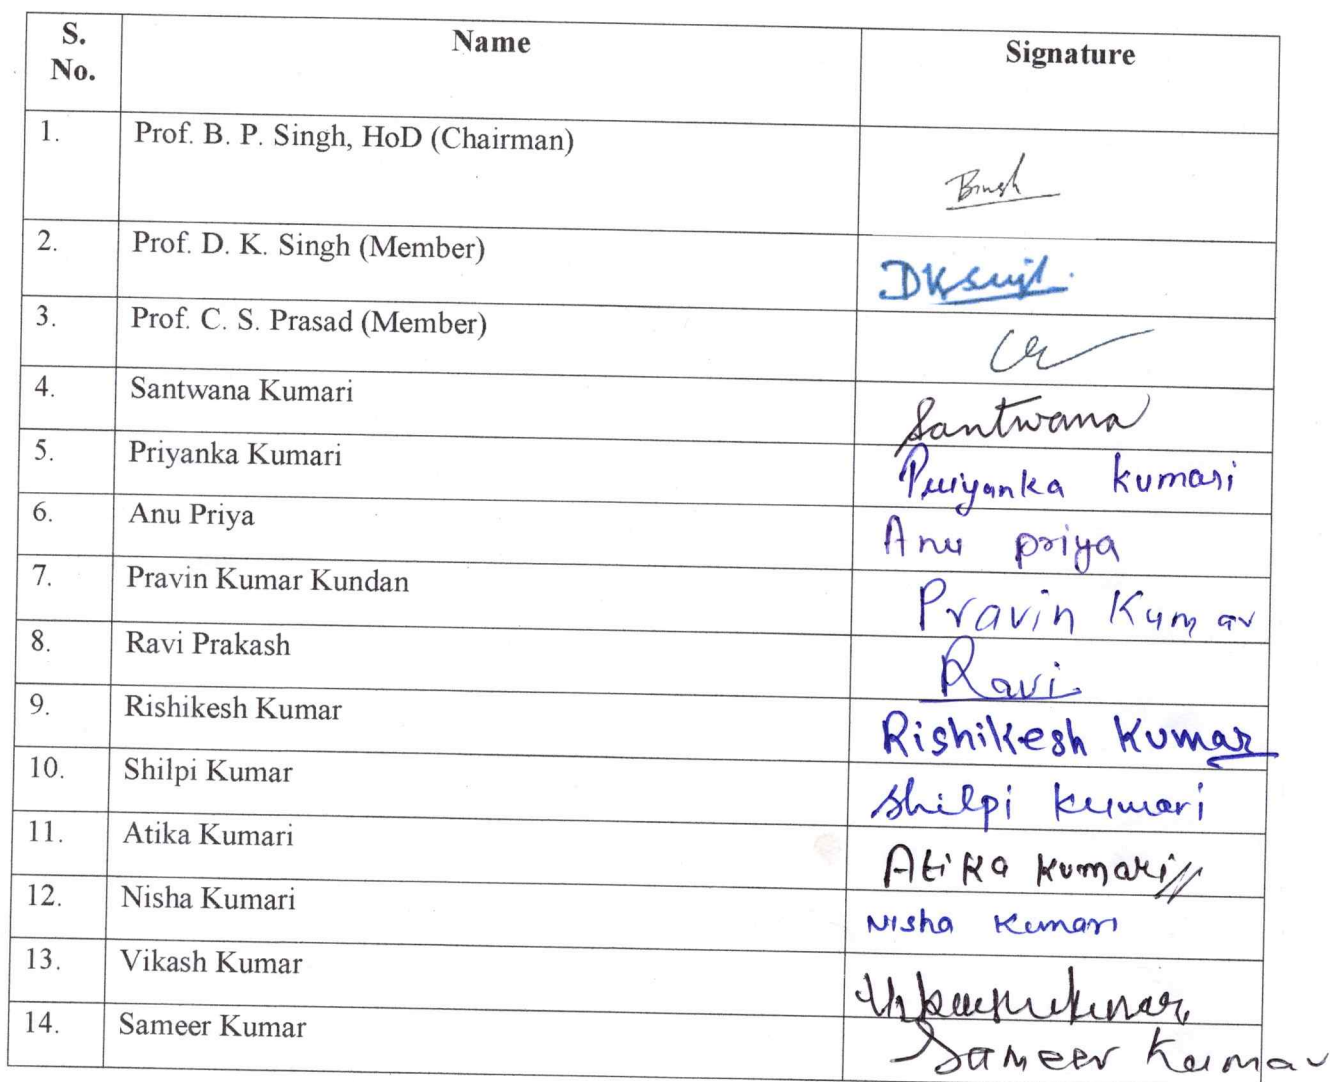 S. No. Name Signature
1. Prof. B. P. Singh, HoD (Chairman)
2. Prof. D. K. Singh (Member) DKSingh.
3. Prof. C. S. Prasad (Member)
4. Santwana Kumari Santwana
5. Priyanka Kumari Priyanka kumari
6. Anu Priya Anu priya
7. Pravin Kumar Kundan Pravin Kumar
8. Ravi Prakash Ravi
9. Rishikesh Kumar Rishikesh Kumar
10. Shilpi Kumar Shilpi kumari
11. Atika Kumari Atika kumari
12. Nisha Kumari Nisha Kumari
13. Vikash Kumar
14. Sameer Kumar Sameer Kumar